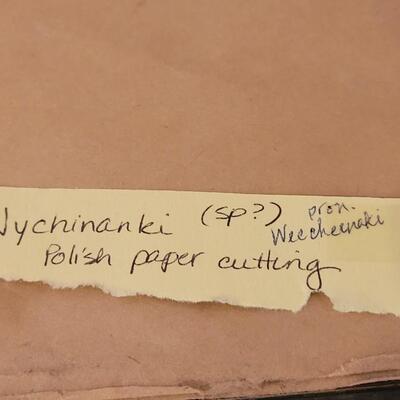 Wychinanki (sp?) pron.
Weecheenaki
Polish paper cutting